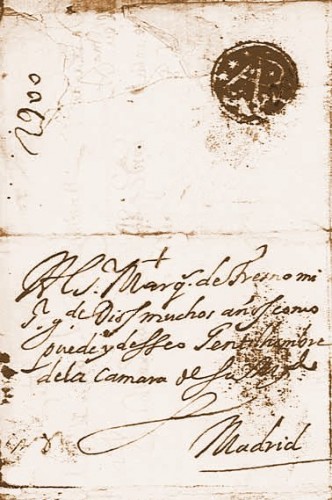 Al S. Marq. de Fresno mi
S. g. de Dios muchos años como
puede y desseo Gentilhombre
de la Camara de Su Mg.d
Madrid